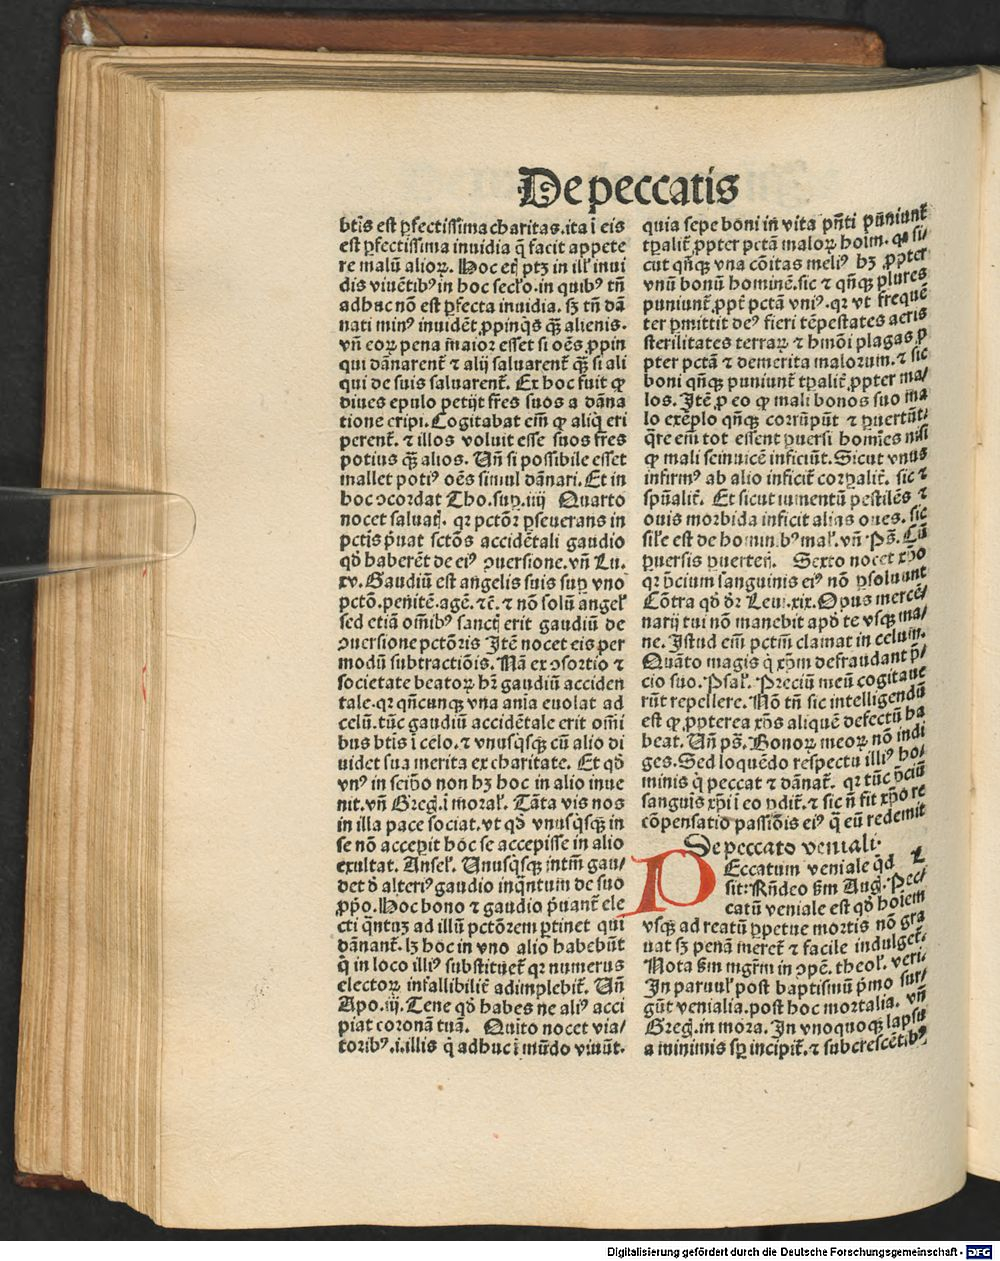 De peccatis
btīs est ꝑfectissima charitas.ita ī eis
est ꝑfectissima inuidia q̄ facit appete
re malū alioꝝ. Hoc etı̄ ptꝫ in ill' inui
dis viuētibꝰ in hoc sec̄lo.in quibꝰ tn̄
adhuc nō est ꝑfecta inuidia. sꝫ tn̄ dā
nati minꝰ inuidēt ꝓpinq̄s qꝫ̄ alienis.
vn̄ eoꝝ pena īn̄aior esset si oēs ꝓpin
qui dānarent᷑ ⁊ alij saluarent᷑ qꝫ̄ si ali
qui de suis saluarent᷑. Ex hoc fuit ꝙ
diues epulo petijt fr̄es suos a dāna
tione eripi.Cogitabat em̄ ꝙ aliq̇ eri
perent᷑. ⁊ illos voluit esse suos fr̄es
potius qꝫ̄ alios. Un̄ si possibile esset
mallet potiꝰ oēs simul dānari.Et in
hoc ↄcordat Tho.suꝑ.iiij Quarto
nocet saluatꝭ. qꝛ pctōꝛ ꝑseuerans in
pctīs p̄uat sctōs accidētali gaudio
qd̄ haberēt de eiꝰ ↄuersione.vn̄ Lu.
xv.Gaudiū est angelis suis suꝑ vno
pctō.penitē.agē.⁊c̄.⁊ nō solū angel'
sed etiā oīn̄ibꝰ sanctꝭ erit gaudiū de
ↄuersione pctōris Itē nocet eis per
modū subtractiōis.Nā ex ↄsortio ⁊
societate beatoꝝ hr̄ gaudiū acciden
tale.qꝛ qn̄cunqꝫ vna anīa euolat ad
celū.tūc gaudiū accidētale erit om̄i
bus btīs ī celo.⁊ vnusq̇sqꝫ cū alio di
uidet sua merita ex charitate. Et qd̄
vnꝰ in seip̄o non hꝫ hoc in alio inue
nit.vn̄ Greg̃.ī moral'. Tāta vis nos
in illa pace sociat.vt qd̄ vnusq̇sqꝫ in
se nō accepit hoc se accepisse in alio
exultat.Ansel'. Unusq̇sqꝫ intm̄ gau/
det d̄ alteriꝰ gaudio inq̄ntum de suo
ꝓp̄o.Hoc bono ⁊ gaudio p̄uant᷑ ele
cti q̄ntuꝫ ad illū pctōrem ꝑtinet qui
dānant᷑.lꝫ hoc in vno alio habebūt
q̇ in loco illiꝰ substituet᷑ qꝛ numerus
electoꝝ infallibilit᷑ adimplebit᷑. Un̄
Apo.iij.Tene qd̄ habes ne aliꝰ acci
piat coronā tuā. Quīto nocet via/
toribꝰ.i.illis q̇ adhuc ī mūdo viuūt.
quia sepe boni in vita pn̄ti puniunt᷑
tꝑalit᷑ ꝓpter pctā maloꝝ hoīm. qꝛ si/
cut qn̄qꝫ vna cōitas meliꝰ hꝫ ꝓpter
vnū bonū hominē.sic ⁊ qn̄qꝫ plures
puniunt᷑ ꝓpt᷑ pctā vniꝰ.qꝛ vt frequē
ter ꝑmittit deꝰ fieri tēpestates aeris
sterilitates terraꝝ ⁊ hmōi plagas ꝓ
pter pctā ⁊ demerita malorum.⁊ sic
boni qn̄qꝫ puniunt᷑ tꝑalit᷑ ꝓpter ma/
los.Itē ꝓ eo ꝙ mali bonos suo ma
lo exēplo qn̄qꝫ corrūpūt ⁊ ꝑuertūt.
q̄re em̄ tot essent ꝑuersi hoīnes nisi
ꝙ mali seinuicē inficiūt.Sicut vnus
infirmꝰ ab alio inficit᷑ corꝑalit᷑. sic ⁊
sp̄ūalit᷑. Et sicut iumentū pestilēs ⁊
ouis morbida inficit alias oues. sic
sil'e est de hominibꝰ mal'. vn̄ Ps̄. Cū
ꝑuersis ꝑuerteꝭ. Sexto nocet xp̄o
qꝛ p̄cium sanguinis eiꝰ nō ꝑsoluunt
Cōtra qd̄ dr̄ Leui.xix.Opus mercē/
narij tui nō manebit apd̄ te vsqꝫ ma/
ne.Istud em̄ pctm̄ clamat in celum.
Quāto magis q̇ xp̄m defraudant p̄/
cio suo.Psal'.Preciū meū cogitaue
rūt repellere.Nō tn̄ sic intelligendū
est ꝙ ꝓpterea xp̄s aliquē defectū ha
beat.Un̄ ps̄.Bonoꝝ meoꝝ nō indi
ges.Sed loquēdo respectu illiꝰ ho/
minis q̇ peccat ⁊ dānat᷑. qꝛ tūc p̄ciū
sanguīs xp̄i ī eo ꝑdit᷑.⁊ sic n̄ fit xp̄o re
cōpensatio passiōis eiꝰ q̄ eū redemit
De peccato veniali.
PEccatum veniale qd̄
sit:Rn̄deo ẜm Aug̃.Pec/
catū veniale est qd̄ hoīem
vsqꝫ ad reatū ꝑpetue mortis nō gra
uat sꝫ penā meret᷑ ⁊ facile indulget᷑.
Nota ẜm mgr̄m in ↄpē. theol'. veri.
In paruul' post baptismū p̄mo sur/
gūt venialia.post hoc mortalia. vn̄
Greg̃.in mora. In vnoquoqꝫ lapsu
a minimis sꝑ incipit᷑.⁊ subcrescētibꝰ
Digitalisierung gefördert durch die Deutsche Forschungsgemeinschaft - DFG